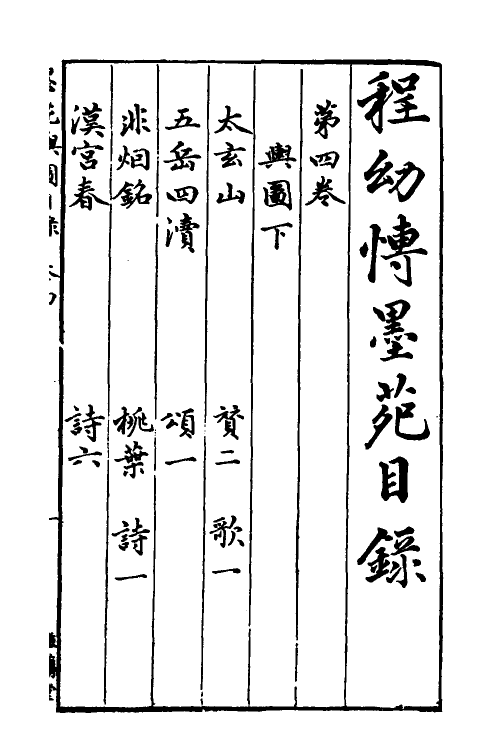 程幼博墨苑目錄
第四卷
輿圖下
太玄山 贊二 歌一
五岳四瀆 頌一
非烟銘 桃葉 詩一
漢宮春 詩六